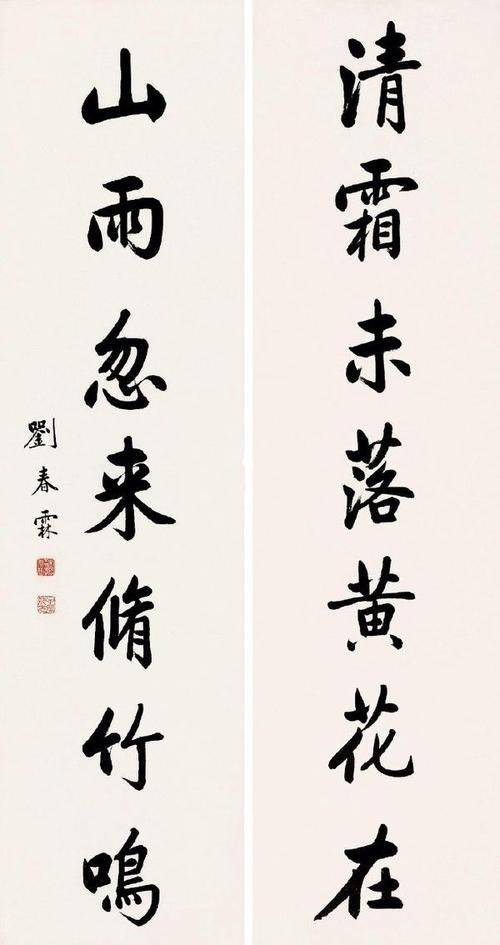 清霜未落黄花在
山雨忽来脩竹鳴
劉春霖